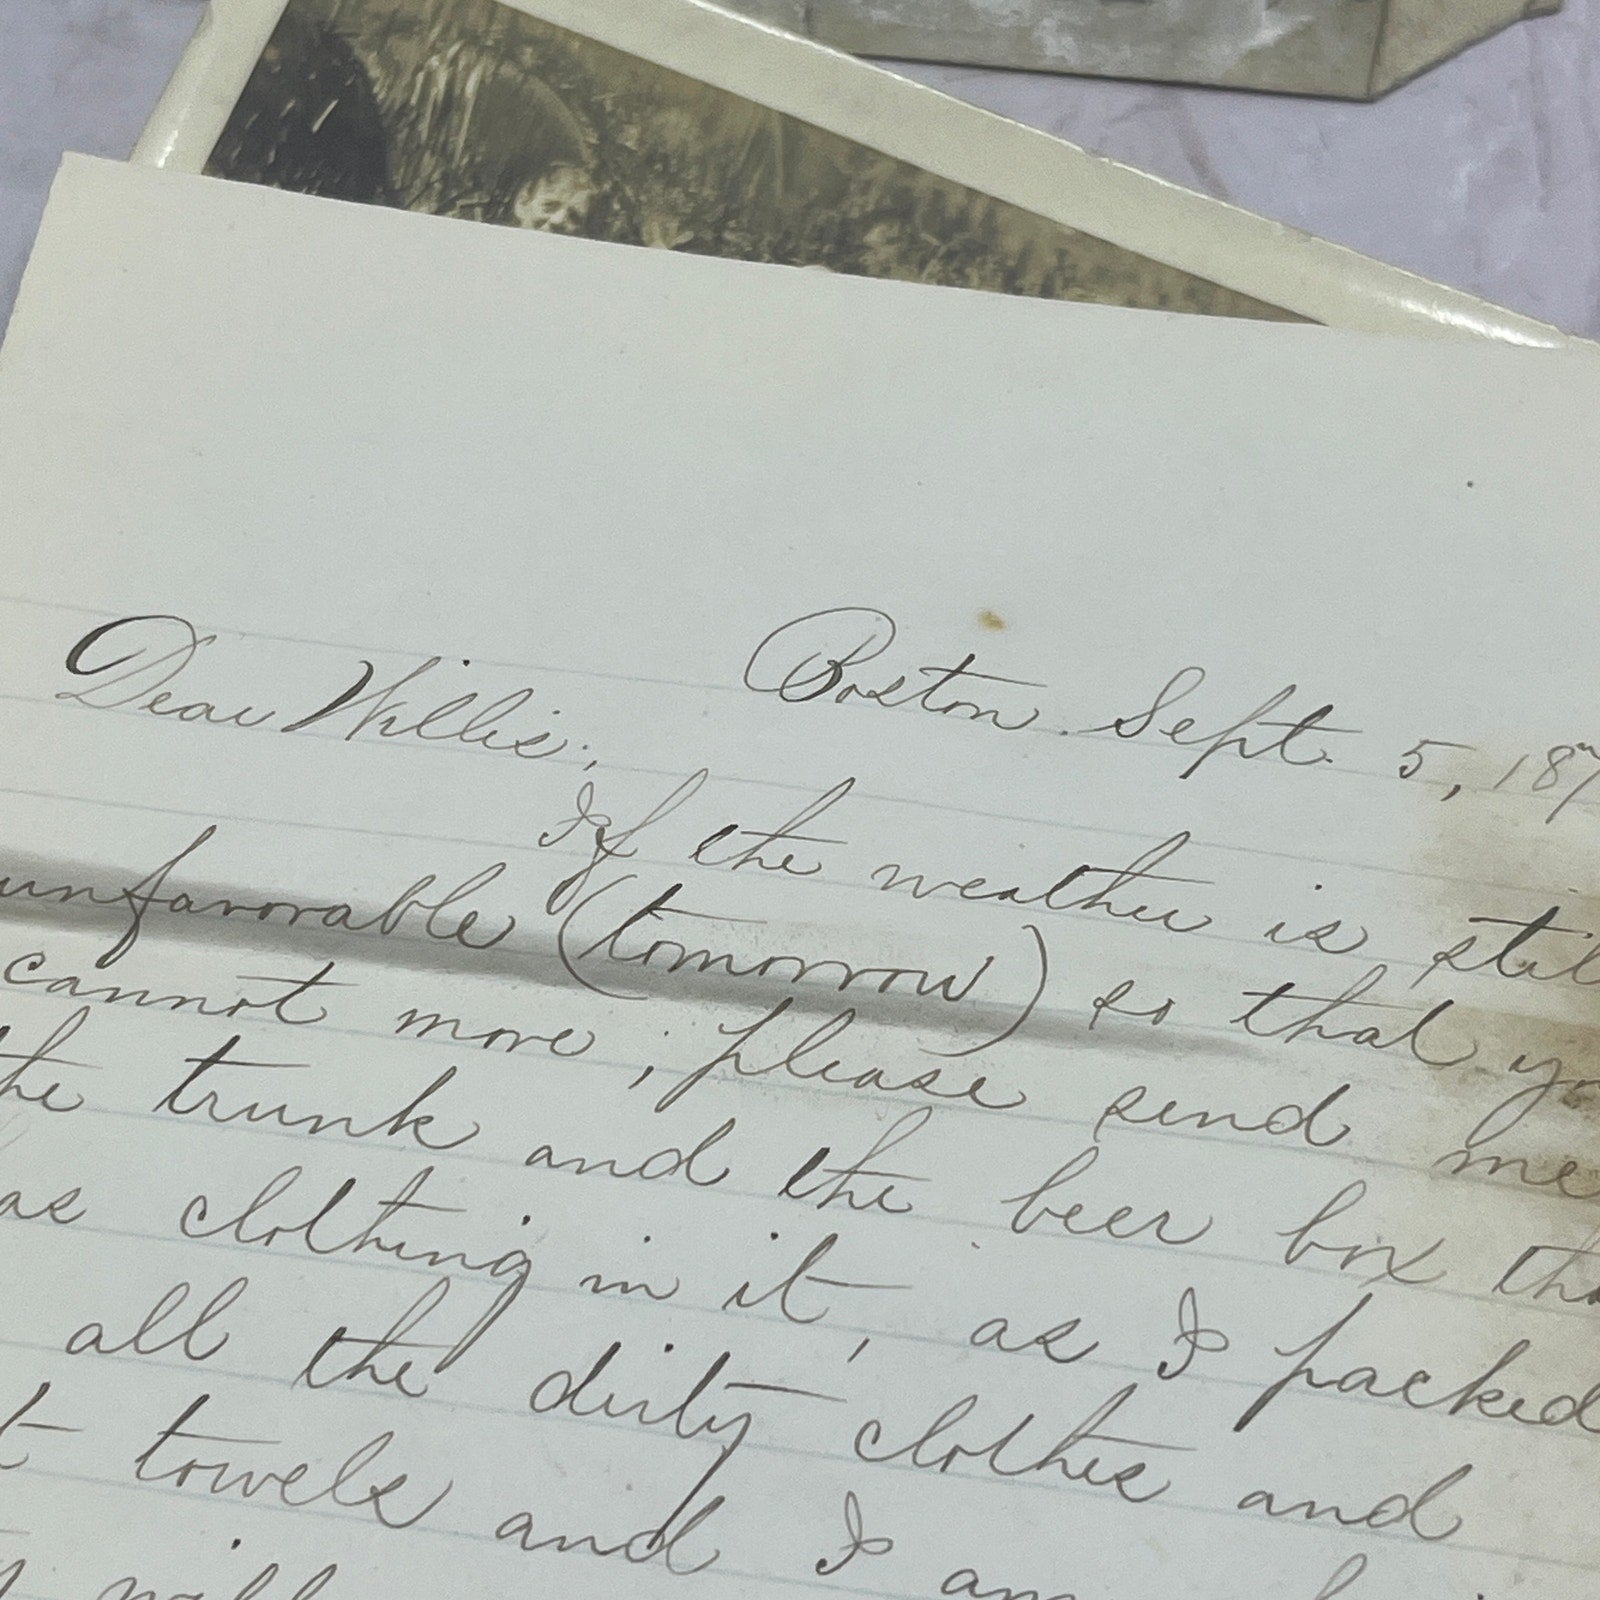 Boston. Sept. 5, 187
Dear Willis;
If the weather is stil
unfavorable (tomorrow) so that yo
cannot move; please send me
he trunk and the beer box tha
as clothing in it, as I packed
all the dirty clothes and
t towels and I am
will